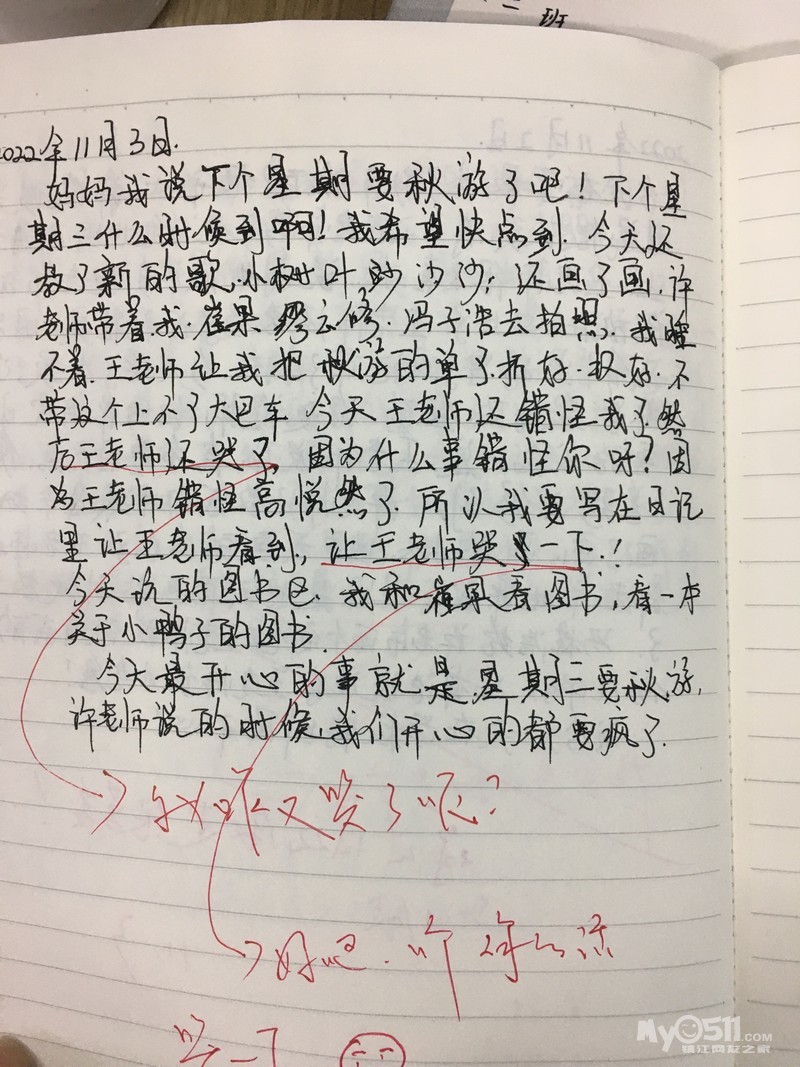 班
2022年11月3日.
妈妈我说下个星期要秋游了吧！下个星
期三什么时候到啊！我希望快点到.今天还
教了新的歌.小树叶,沙沙沙；还画了画.许
老师带着我.崔果 缪云修.冯子浩去拍照.我睡
不着.王老师让我把秋游的单子折好.收好.不
带这个上不了大巴车 今天王老师还错怪我了然
后王老师还哭了 因为什么事错怪你呀？因
为王老师错怪高悦然了.所以我要写在日记
里让王老师看到,让王老师哭了一下.！
今天玩的图书区.我和崔果看图书,看一本
关于小鸭子的图书.
今天最开心的事就是,星期三要秋游,
许老师说的时候,我们开心的都要疯了.
我咋又哭了呢？
好吧.听你的话
哭一下
My0511.COM
镇江网友之家